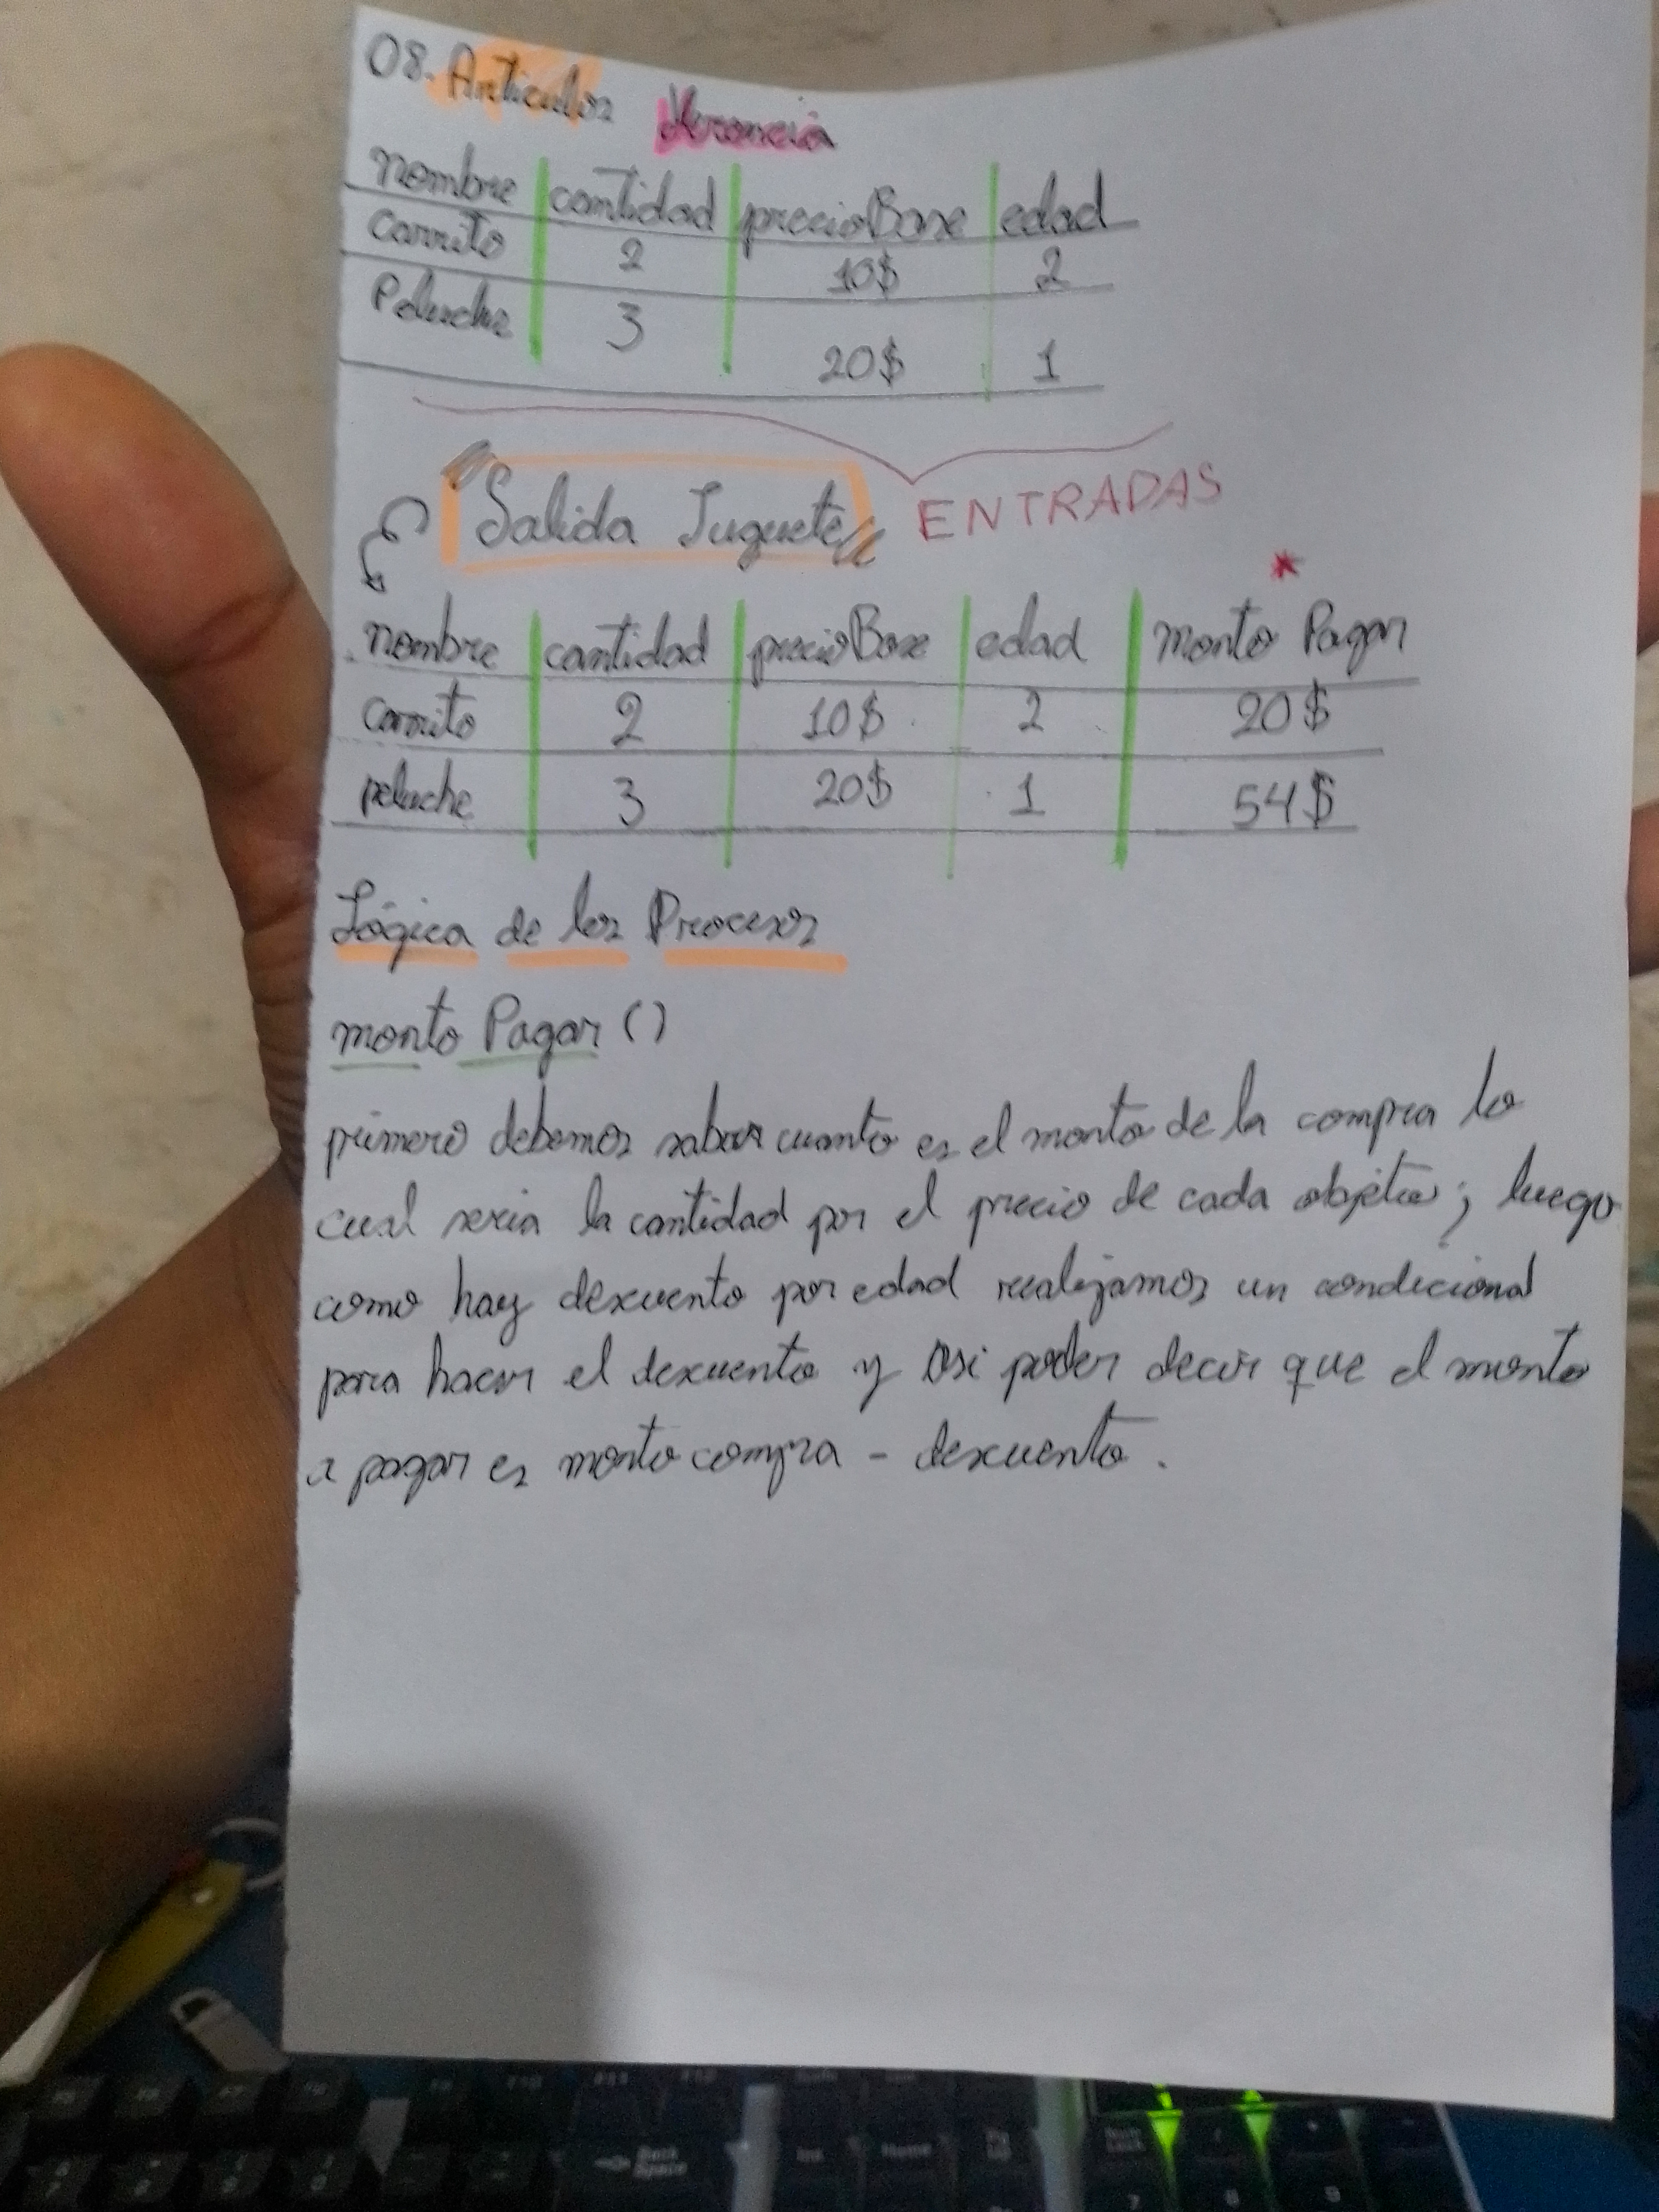 08. Articulos Herencia
nombre cantidad precioBase edad
carrito 2 10$ 2
Peluche 3 20$ 1
ENTRADAS
"Salida Juguete"
*
nombre cantidad precioBase edad monto Pagar
carrito 2 10$ 2 20$
peluche 3 20$ 1 54$
Lógica de los Procesos
monto Pagar ()
primero debemos saber cuanto es el monto de la compra lo
cual seria la cantidad por el precio de cada objeto; luego
como hay descuento por edad realizamos un condicional
para hacer el descuento y asi poder decir que el monto
a pagar es monto compra - descuento.